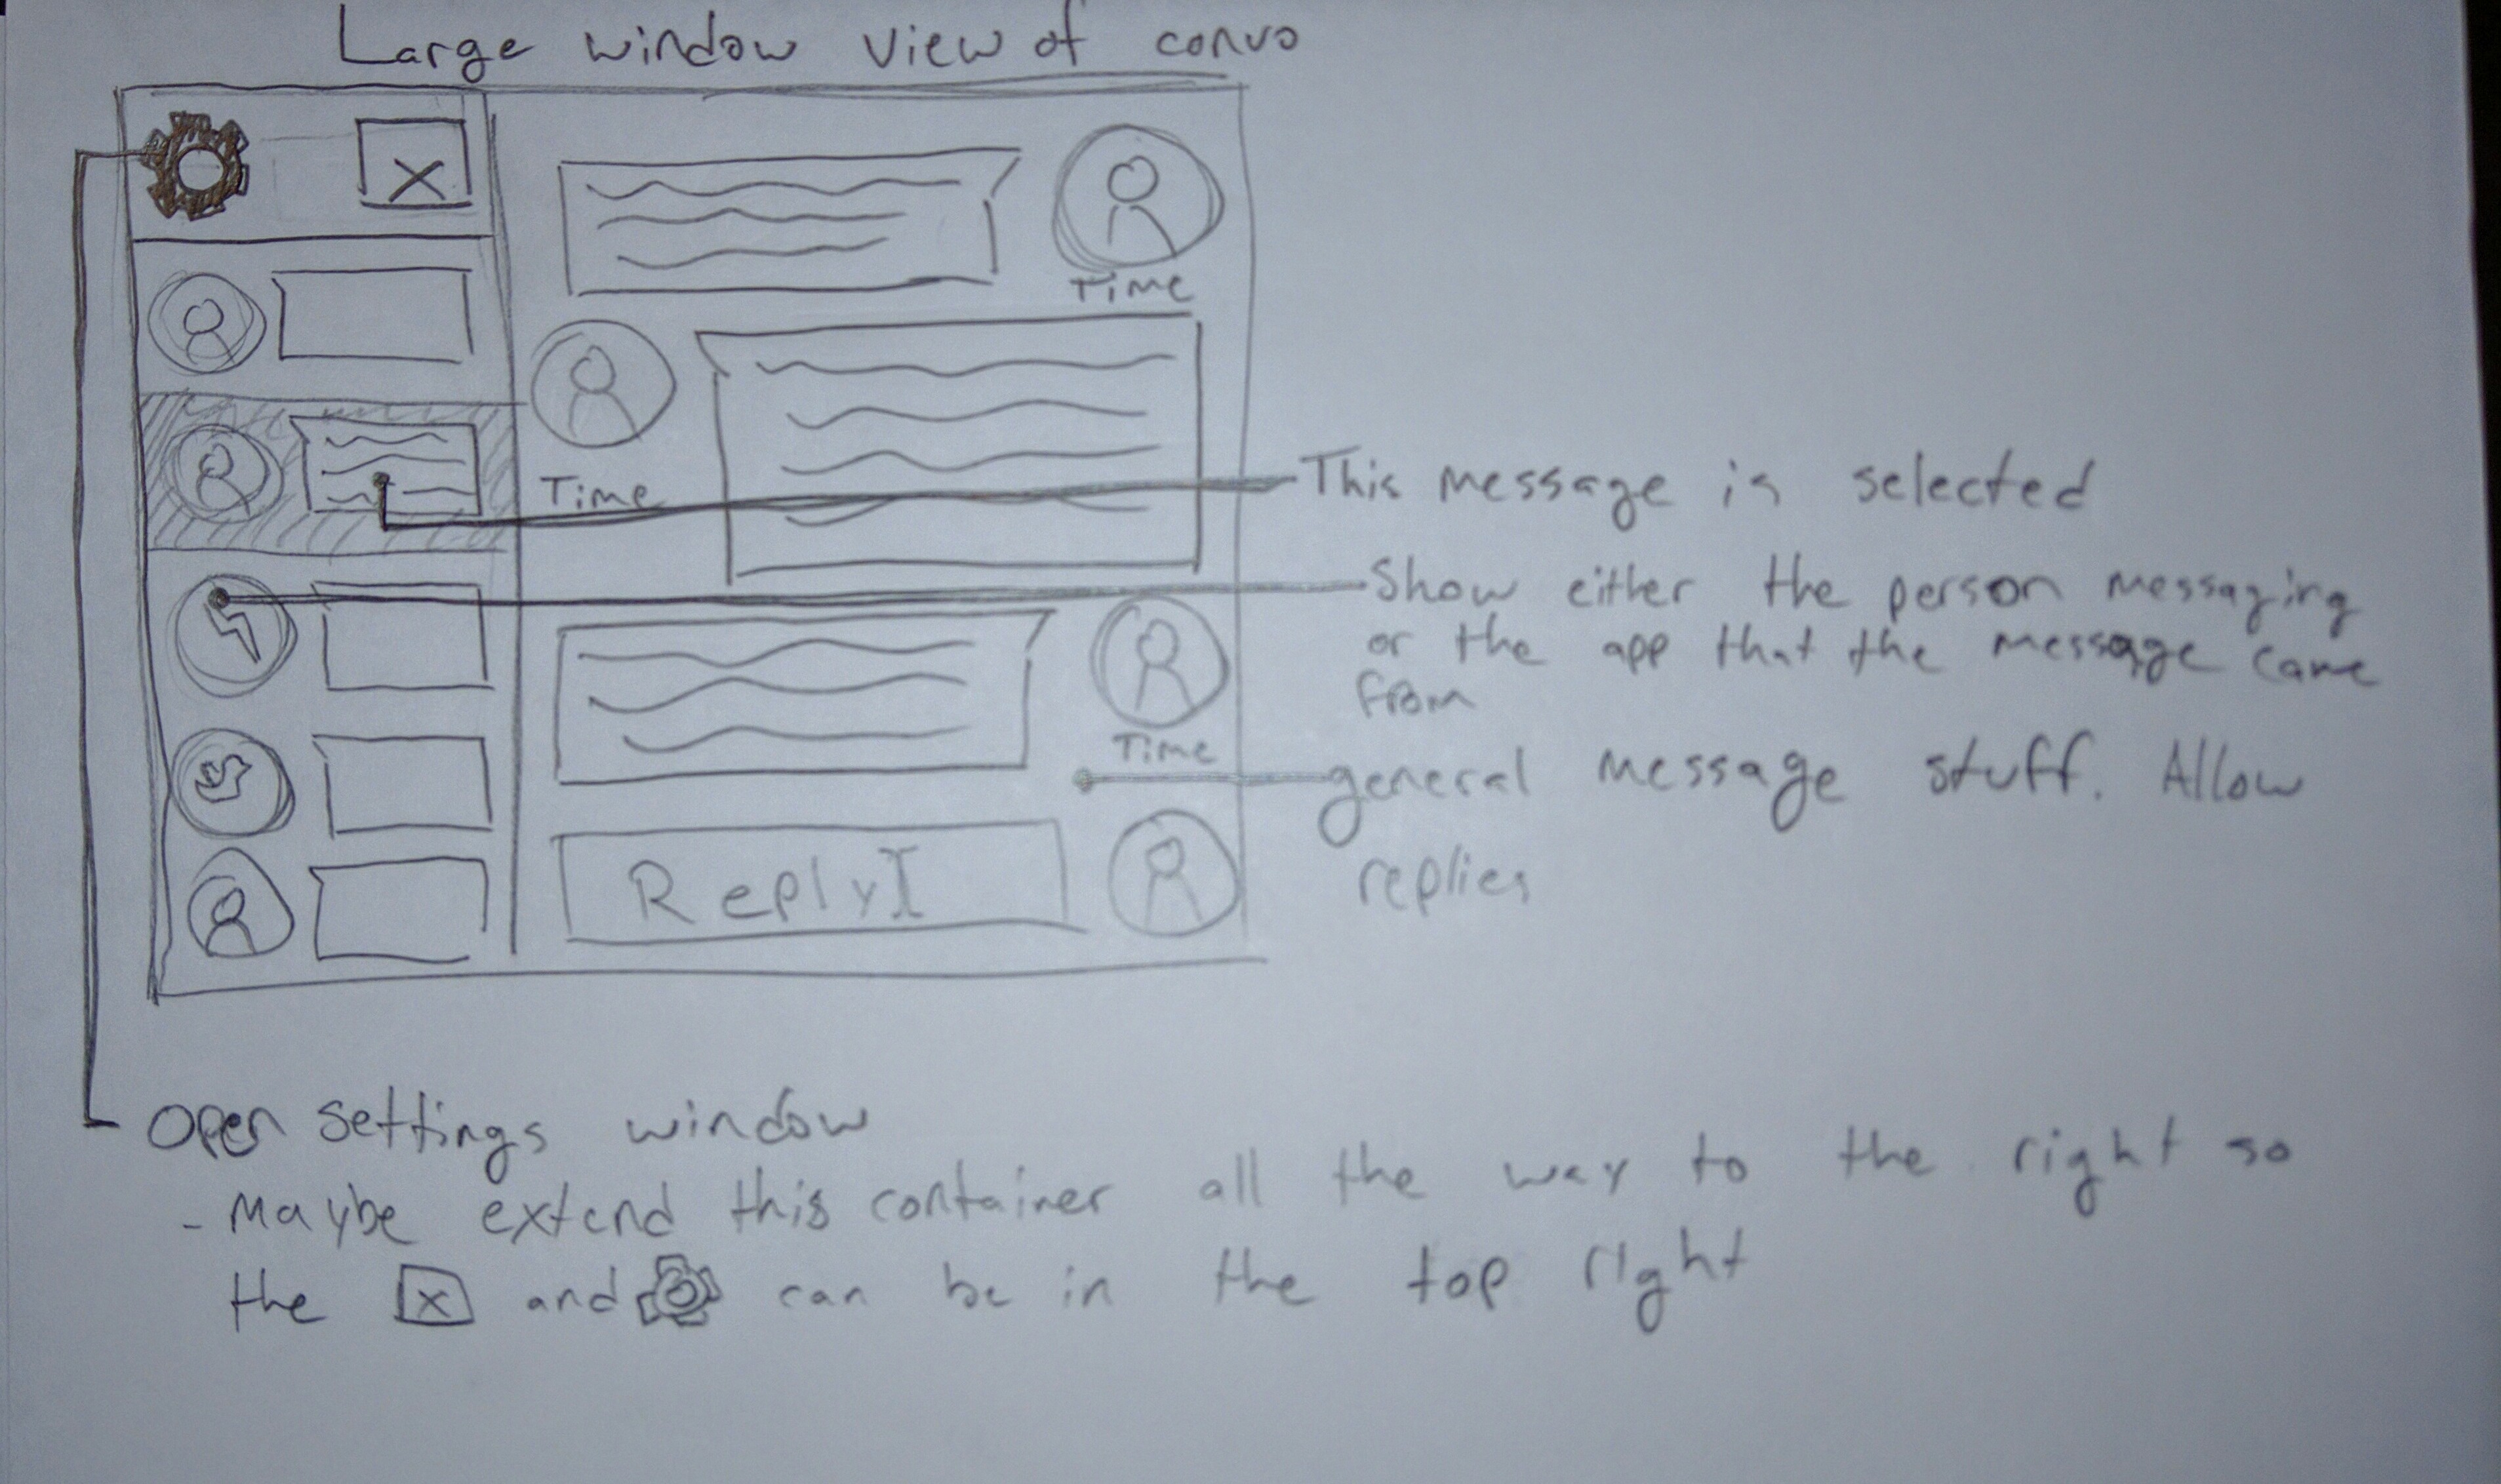 Large window view of convo
X
Time
Time
This message is selected
Show either the person messaging
or the app that the message came
from
Time
general message stuff. Allow
replies
Reply
Open settings window
- Maybe extend this container all the way to the right so
the X and can be in the top right